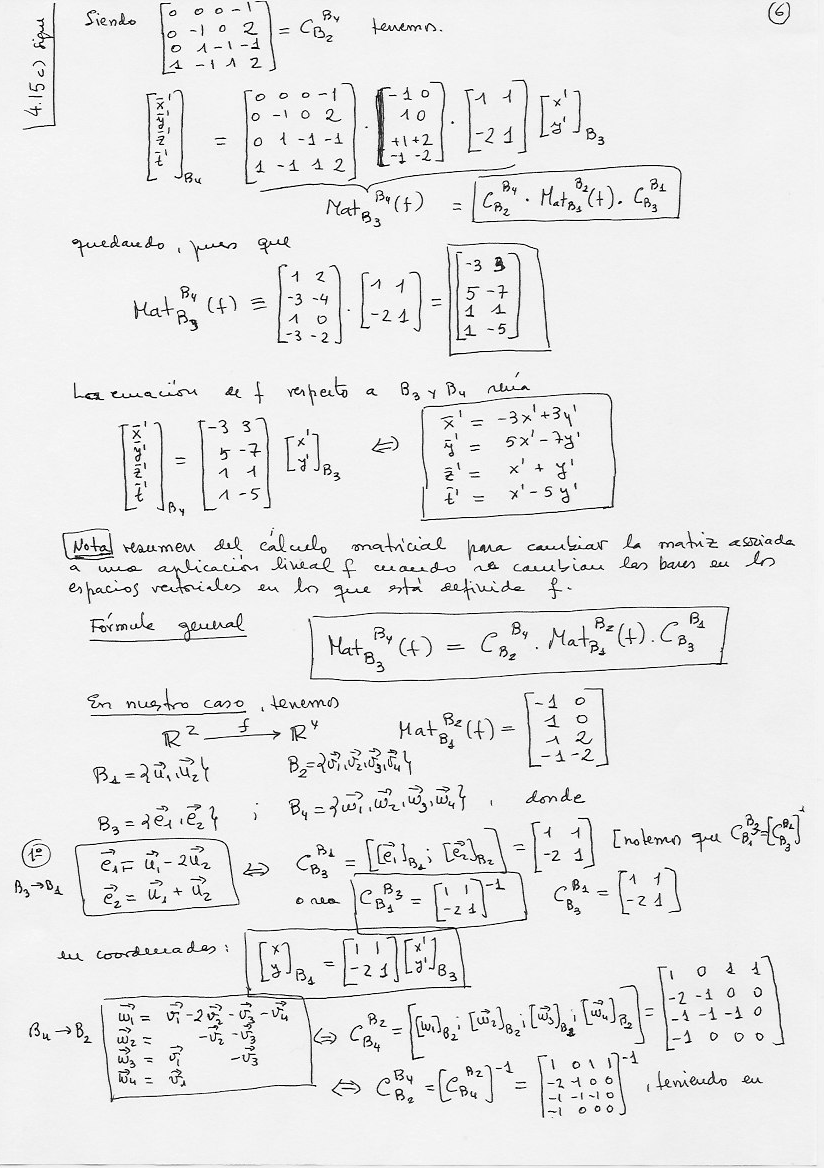 4.15 c) sigue
(6)
Siendo [0 0 0 -1; 0 -1 0 2; 0 1 -1 -1; 1 -1 1 2] = C_{B2}^{B4} tenemos.
[x̄'; ȳ'; z̄'; t̄']_{B4} = [0 0 0 -1; 0 -1 0 2; 0 1 -1 -1; 1 -1 1 2] · [-1 0; 1 0; +1 +2; -1 -2] · [1 1; -2 1] [x'; y']_{B3}
Mat_{B3}^{B4}(f) = C_{B2}^{B4} · Mat_{B1}^{B2}(f) · C_{B3}^{B1}
quedando, pues que
Mat_{B3}^{B4}(f) ≡ [1 2; -3 -4; 1 0; -3 -2] · [1 1; -2 1] = [-3 3; 5 -7; 1 1; 1 -5]
La ecuación de f respecto a B3 y B4 sería
[x̄'; ȳ'; z̄'; t̄']_{B4} = [-3 3; 5 -7; 1 1; 1 -5] [x'; y']_{B3} ⇔ x̄' = -3x'+3y'
ȳ' = 5x'-7y'
z̄' = x' + y'
t̄' = x'-5y'
Nota resumen del cálculo matricial para cambiar la matriz asociada
a una aplicación lineal f cuando se cambian las bases en los
espacios vectoriales en los que está definida f.
Fórmula general Mat_{B3}^{B4}(f) = C_{B2}^{B4} · Mat_{B1}^{B2}(f) · C_{B3}^{B1}
En nuestro caso, tenemos
R² —f→ R⁴ Mat_{B1}^{B2}(f) = [-1 0; 1 0; 1 2; -1 -2]
B1 = {u⃗1, u⃗2} B2 = {v⃗1, v⃗2, v⃗3, v⃗4}
B3 = {e⃗1, e⃗2} ; B4 = {w⃗1, w⃗2, w⃗3, w⃗4}, donde
1º B3→B1 e⃗1 = u⃗1 - 2u⃗2 ⇔ C_{B3}^{B1} = [[e⃗1]_{B1}; [e⃗2]_{B2}] = [1 1; -2 1] [notemos que C_{B1}^{B3} = [C_{B3}^{B1}]^{-1}
e⃗2 = u⃗1 + u⃗2 o sea C_{B1}^{B3} = [1 1; -2 1]^{-1} C_{B3}^{B1} = [1 1; -2 1]
en coordenadas: [x; y]_{B1} = [1 1; -2 1] [x'; y']_{B3}
B4→B2 w⃗1 = v⃗1 - 2v⃗2 - v⃗3 - v⃗4
w⃗2 = -v⃗2 - v⃗3
w⃗3 = v⃗1 - v⃗3
w⃗4 = v⃗1
⇔ C_{B4}^{B2} = [[w1]_{B2}; [w⃗2]_{B2}; [w⃗3]_{B2}; [w⃗4]_{B2}] = [1 0 1 1; -2 -1 0 0; -1 -1 -1 0; -1 0 0 0]
⇔ C_{B2}^{B4} = [C_{B4}^{B2}]^{-1} = [1 0 1 1; -2 -1 0 0; -1 -1 -1 0; -1 0 0 0]^{-1}, teniendo en